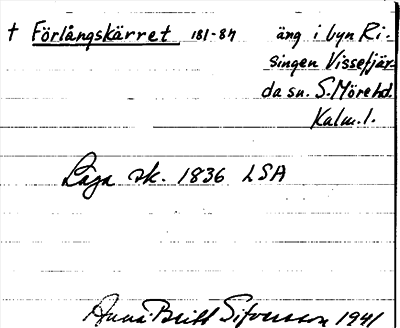 † Förlångskärret 181-84 äng i byn Ri-
singen Vissefjär-
da sn. S. Möre hd.
Kalm. l.
Läga sk. 1836 LSA
Anna-Britt Sifversson 1941